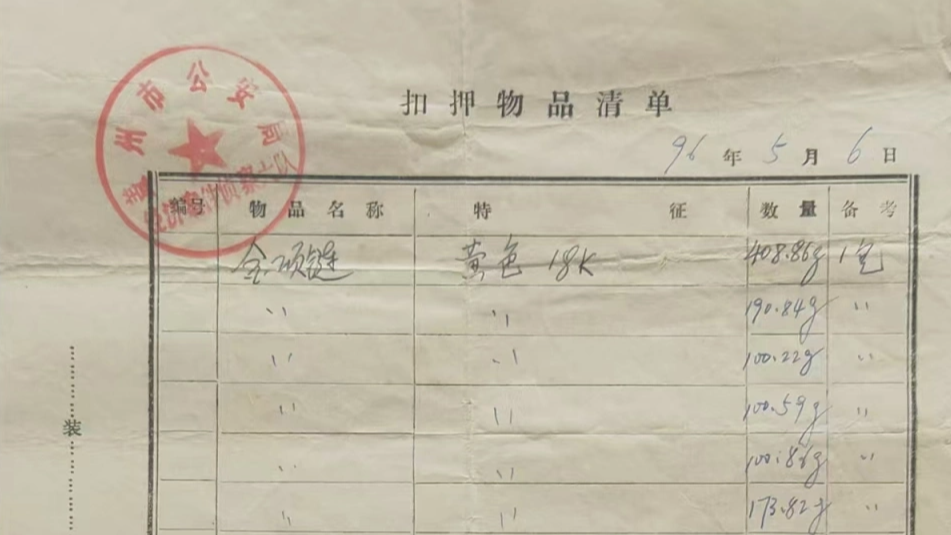 州市公安局
经济案件侦察大队
扣押物品清单
96年5月6日
编号 物品名称 特征 数量 备考
金项链 黄色 18K 408.86g 1包
〃 〃 190.84g 〃
〃 〃 100.22g 〃
〃 〃 100.59g 〃
〃 〃 100.86g 〃
〃 〃 173.82g 〃
装